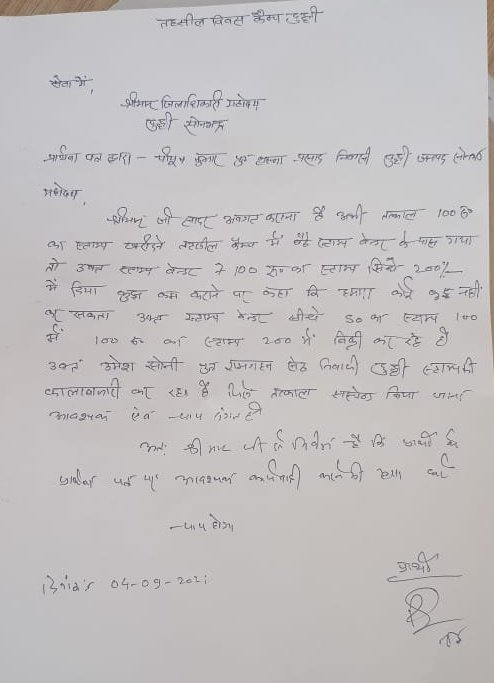 तहसील दिवस कैम्प दुद्धी
सेवा में,
श्रीमान जिलाधिकारी महोदय
दुद्धी सोनभद्र
प्रार्थना पत्र द्वारा - कुमार पुत्र प्रसाद निवासी दुद्धी जनपद सोनभद्र
महोदय,
श्रीमान जी सादर अवगत कराना है अभी तत्काल 100 रु
का स्टाम्प खरीदने तहसील कैम्प में बैठे स्टाम्प वेन्डर के पास गया
तो उक्त स्टाम्प वेन्डर ने 100 रू० का स्टाम्प सिधे 200/-
में दिया कुछ कम कराने पर कहा कि हमारा कोई कुछ नहीं
कर सकता उक्त स्टाम्प वेन्डर सीधे 50 का स्टाम्प 100
में 100 रू का स्टाम्प 200 में बिक्री कर रहे है
उक्त उमेश सोनी पुत्र सेठ निवासी दुद्धी स्टाम्प की
कालाबाजारी कर रहा है जिसे तत्काल सस्पेंड किया जाना
आवश्यक एंव न्याय संगत है
अतः श्रीमान जी से निवेदन है कि प्रार्थी के
प्रार्थना पत्र पर आवश्यक कार्यवाही करने की कृपा करें
न्याय होगा
दिनांक 04-09-2021
प्रार्थी